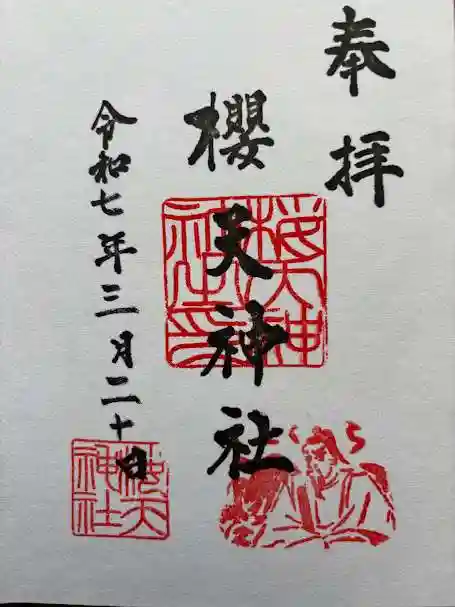 奉拝
櫻天神社
令和七年三月二十日
桜天神社印
桜天神社